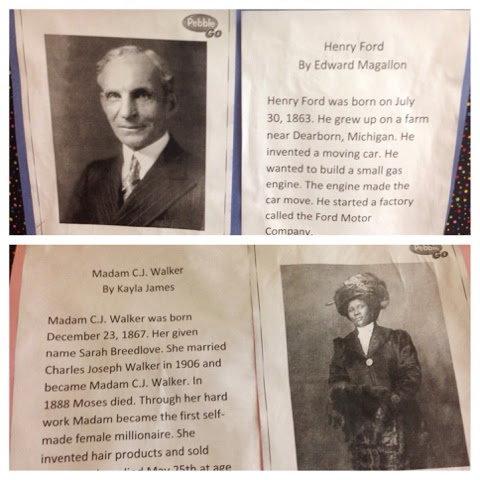 Pebble
GO
Henry Ford
By Edward Magallon
Henry Ford was born on July
30, 1863. He grew up on a farm
near Dearborn, Michigan. He
invented a moving car. He
wanted to build a small gas
engine. The engine made the
car move. He started a factory
called the Ford Motor
Company.
Madam C.J. Walker
By Kayla James
Madam C.J. Walker was born
December 23, 1867. Her given
name Sarah Breedlove. She married
Charles Joseph Walker in 1906 and
became Madam C.J. Walker. In
1888 Moses died. Through her hard
work Madam became the first self-
made female millionaire. She
invented hair products and sold
died May 25th at age
Pebble
GO